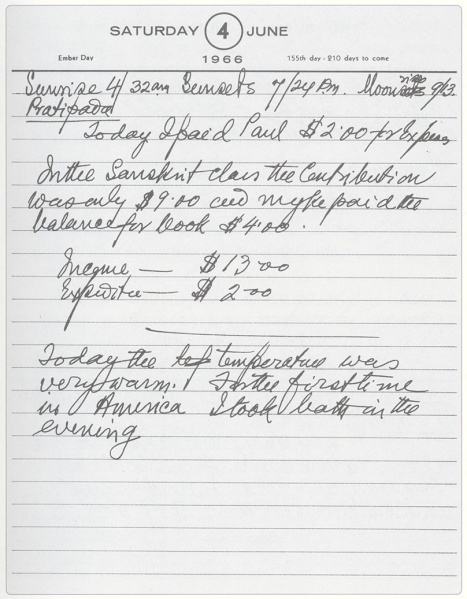 SATURDAY 4 JUNE
Ember Day 1966 155th day - 210 days to come
Sunrise 4/32am Sunsets 7/24 Pm. Moon rise 9/3.
Pratipada
Today I paid Paul $2.00 for Expenses
In the Sanskrit class the Contribution
was only $9.00 and paid the
balance for book $4.00.
Income — $13.00
Expenditure — $2.00
Today the temperature was
very warm. In the first time
in America I took bath in the
evening